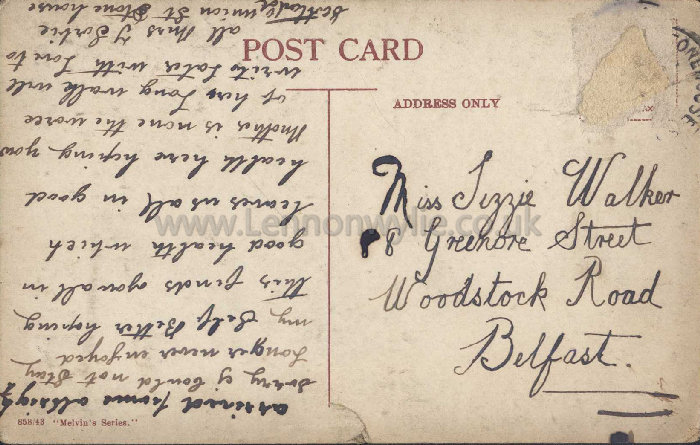 POST CARD
ADDRESS ONLY
Miss Lizzie Walker
8 Grenore Street
Woodstock Road
Belfast.
arrived home alright
sorry I could not stay
longer never enjoyed
my self Better hoping
this finds you all in
good health which
leaves us all in good
health here hoping your
Mother is none the worce
of her long walk will
write later with love to
all Mrs Y Sorbie
Union St Stonehouse
Scotland
858/43 "Melvin's Series."
www.Lennonwylie.co.uk
ONEHOUSE